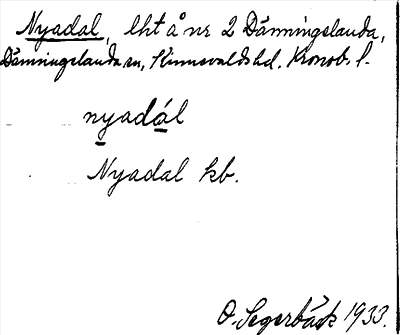 Nyadal, lht å nr 2 Dänningslanda,
Dänningelanda sn, Kinnevalds hd. Kronob. l.
nyadál
Nyadal kb.
O. Segerbäck 1933.